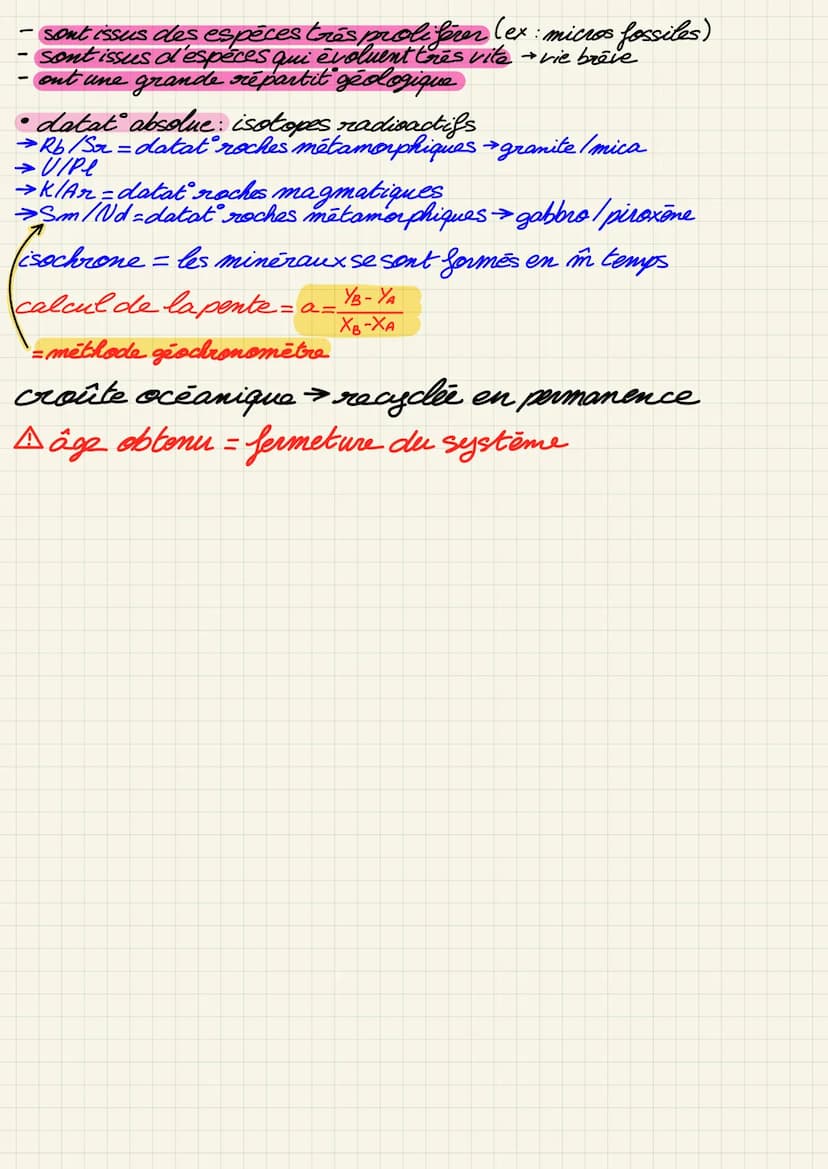 - sont issus des espéces trés proliférer (ex : micros fossiles)
- sont issus d'espéces qui évoluent trés vite → vie bréve
- ont une grande répartit° géologique
• datat° absolue : isotopes radioactifs
→ Rb/Sr = datat° roches métamorphiques → granite/mica
→ U/Pl
→ K/Ar = datat° roches magmatiques
→ Sm/Nd = datat° roches métamorphiques → gabbro/piroxéne
isochrone = les minéraux se sont formés en m̂ temps
calcul de la pente = a = YB - YA / XB - XA
= méthode géochronométre
croûte océanique → recyclée en permanence
⚠ âge obtenu = fermeture du systéme